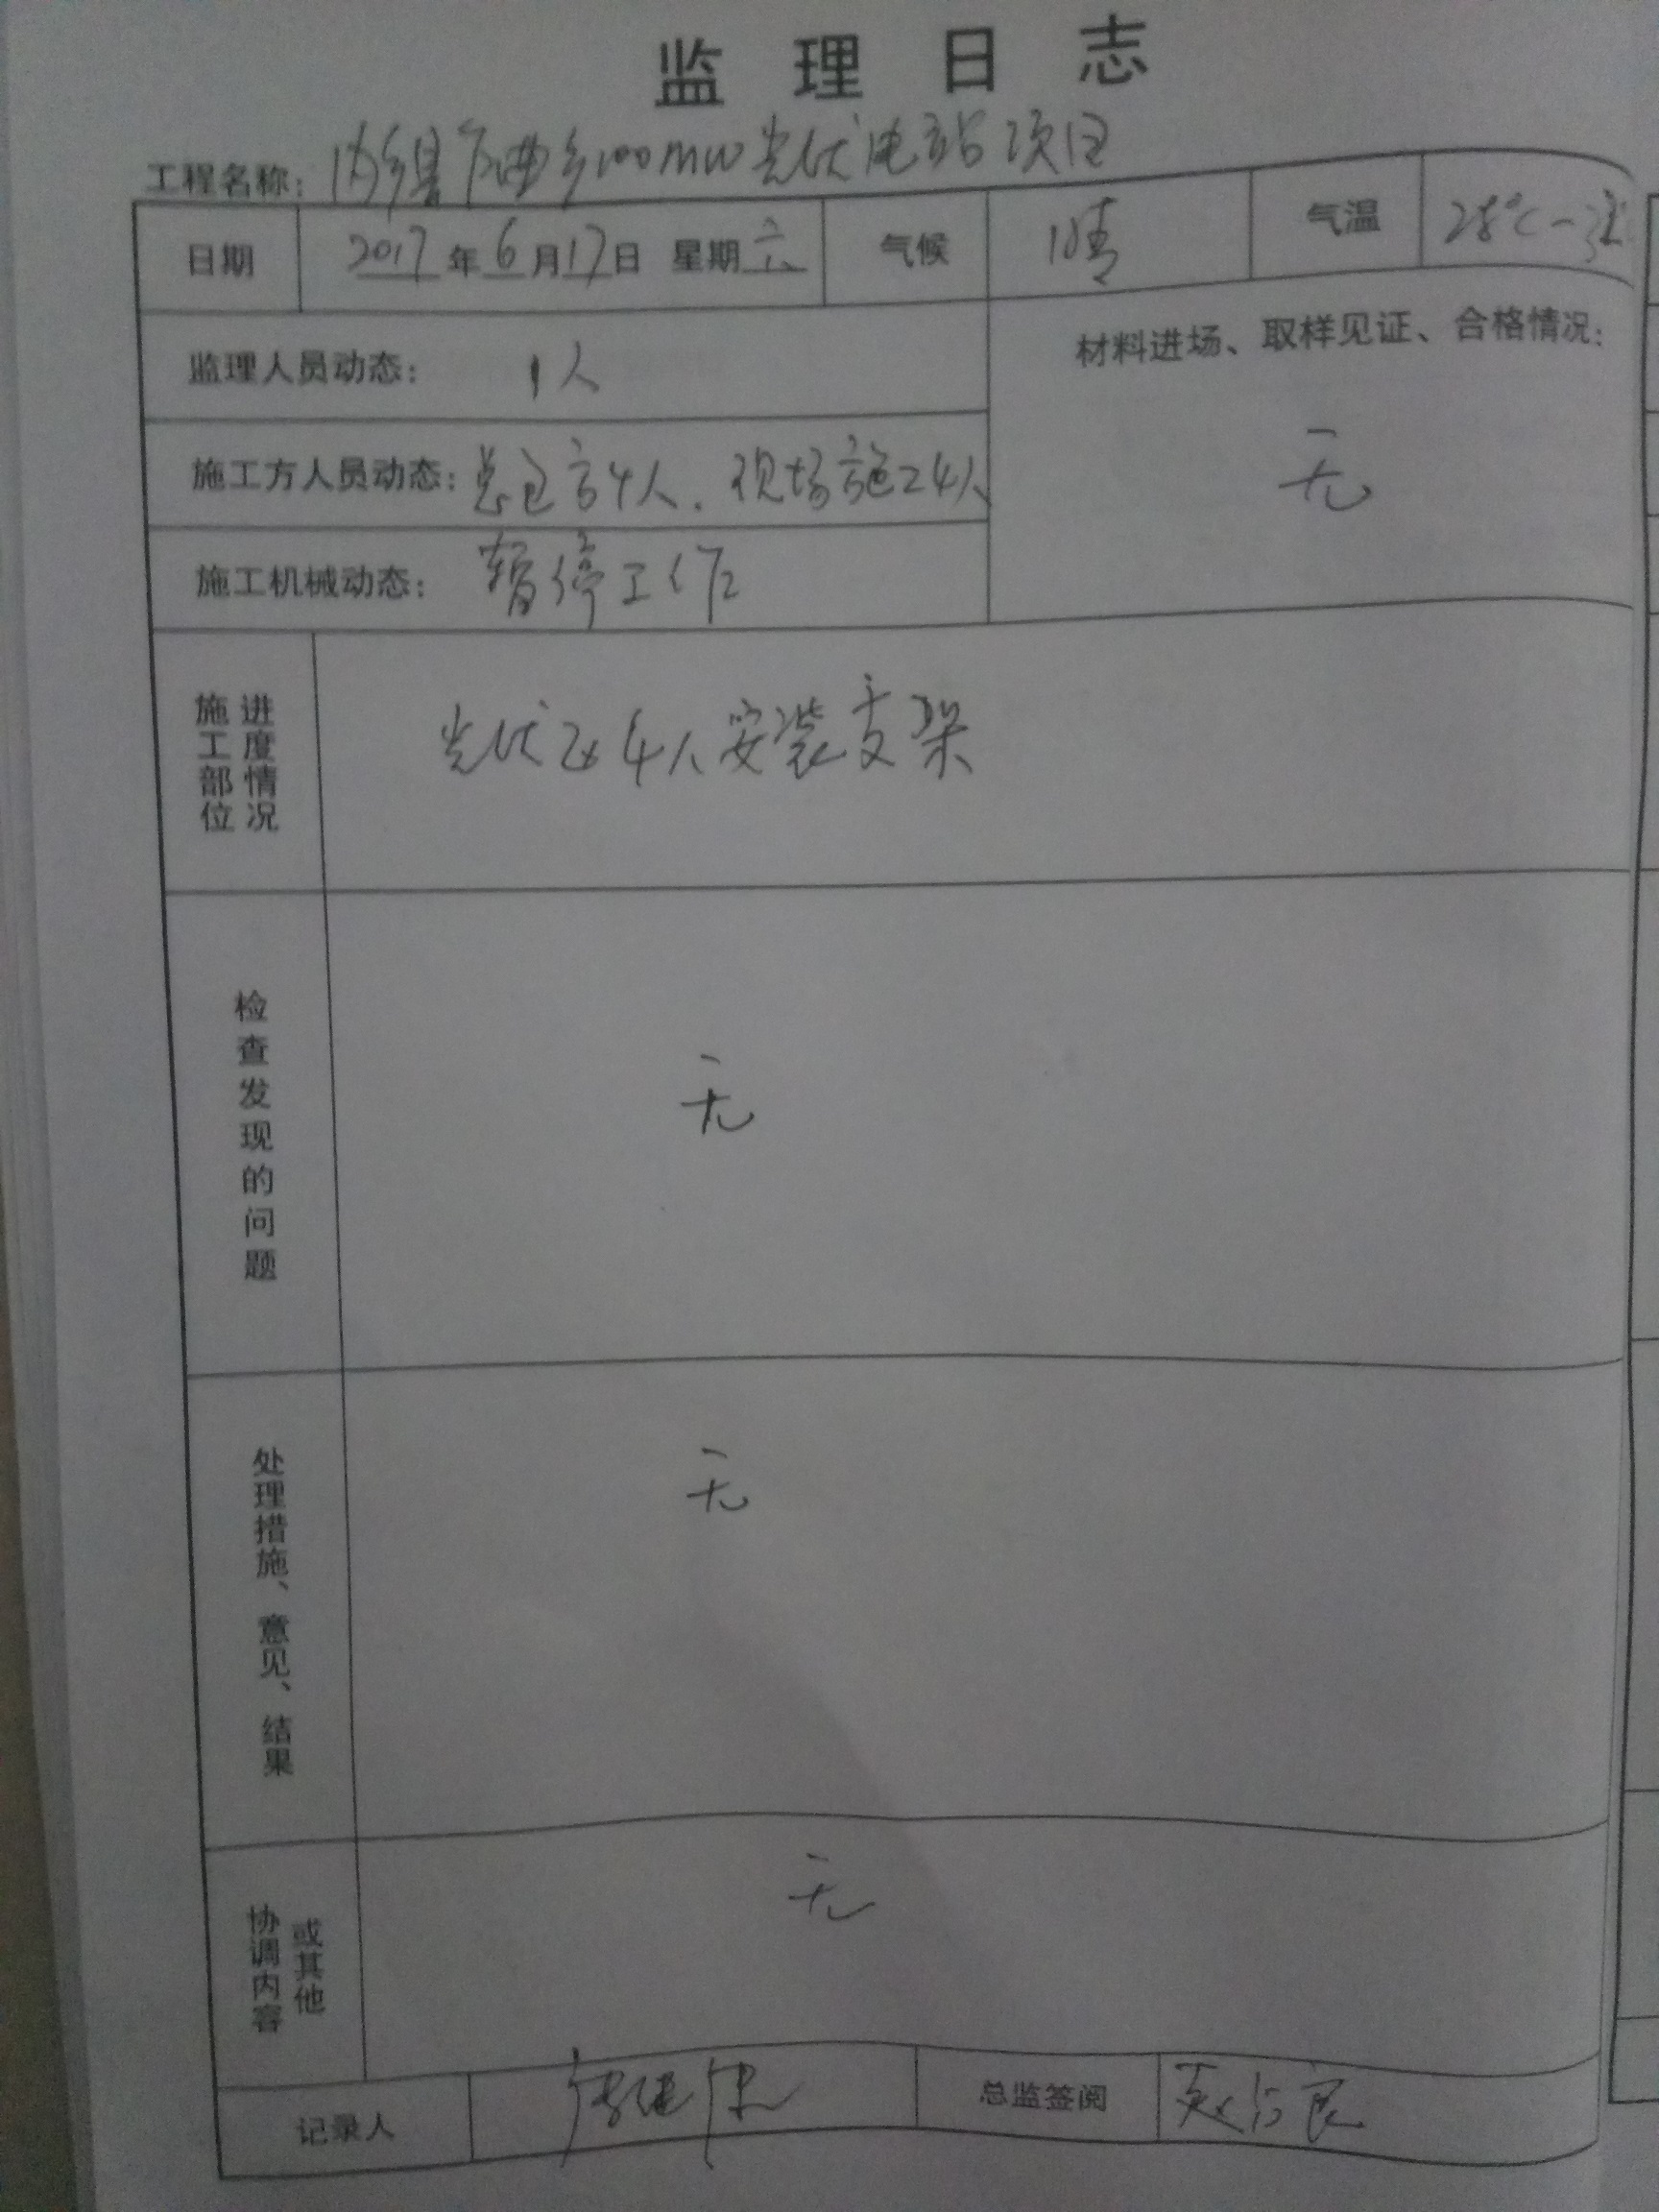 监理日志
工程名称：内乡县瓦亚乡100MW光伏电站项目
日期 2017年6月17日 星期六 气候 晴 气温 28℃-
监理人员动态： 1人
材料进场、取样见证、合格情况：
无
施工方人员动态：总包方4人．现场施工4人
施工机械动态： 暂停工作
施工部位
进度情况
光伏区4人安装支架
检查发现的问题
无
处理措施、意见、结果
无
协调内容
或其他
无
记录人
总监签阅